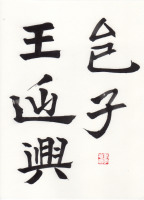 邑子
王興